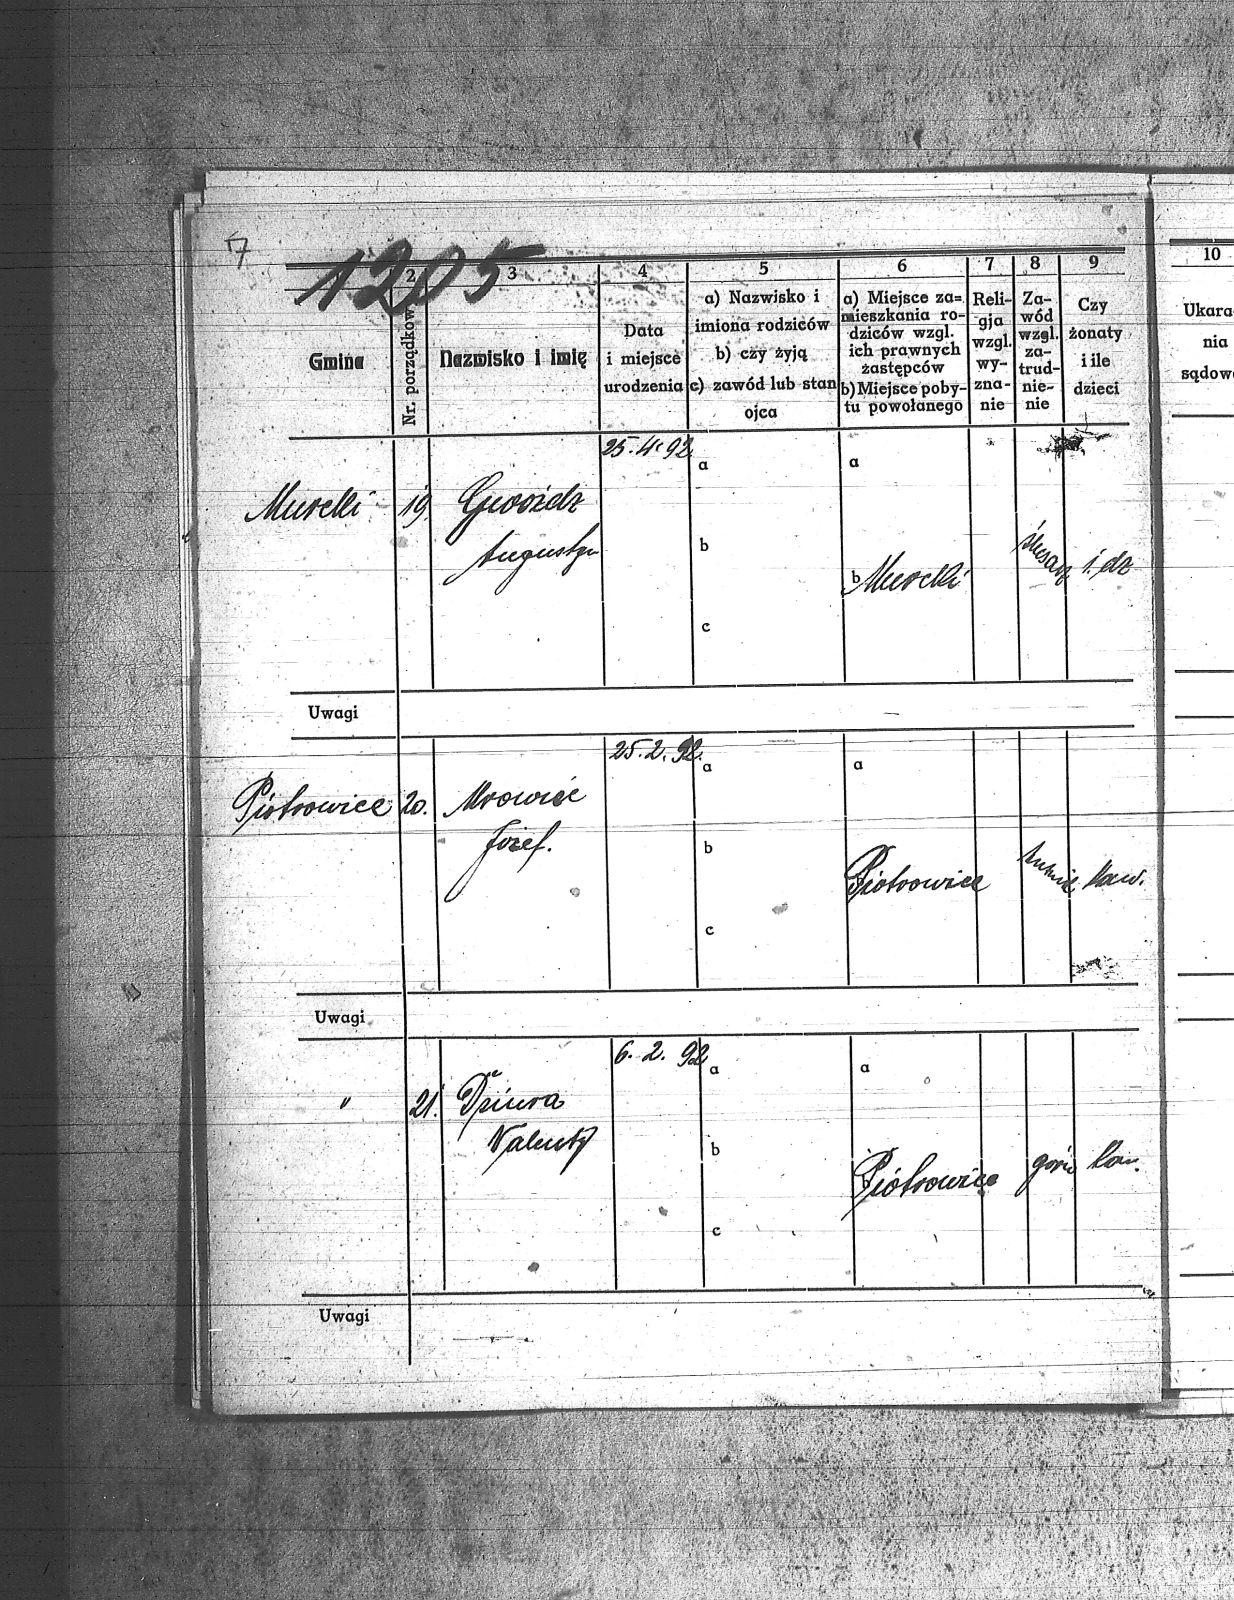 7
1205
2 3 4 5 6 7 8 9 10
Gmina
Nr. porządkow.
Nazwisko i imię
Data
i miejsce
urodzenia
a) Nazwisko i
imiona rodziców
b) czy żyją
c) zawód lub stan
ojca
a) Miejsce za-
mieszkania ro-
dziców wzgl.
ich prawnych
zastępców
b) Miejsce poby-
tu powołanego
Reli-
gja
wzgl.
wy-
zna-
nie
Za-
wód
wzgl.
za-
trud-
nie-
nie
Czy
żonaty
i ile
dzieci
Ukara-
nia
sądowe
25.4.92
a a
Murcki 19. Gwoźdz
Augustyn
b
b Murcki ślusarz j. dz
c
Uwagi
25.2.92.
a a
Piotrowice 20. Mrowiec
Józef.
b
Piotrowice kaw.
c
Uwagi
6.2.92
a a
" 21. Dziura
Walenty
b
Piotrowice górn kaw.
c
Uwagi